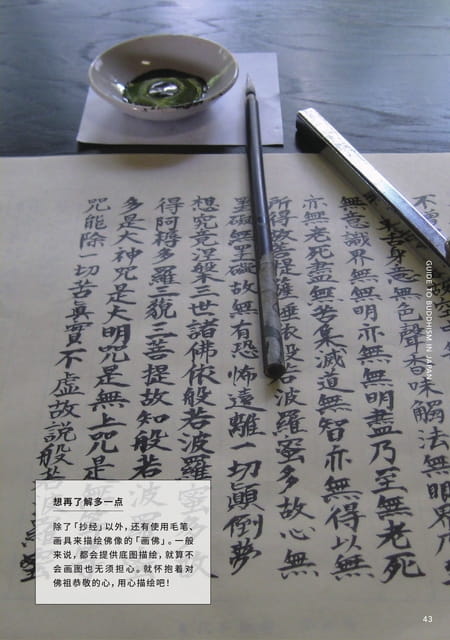 身意無色聲香味觸法無
無意識界無無明亦無無明盡乃至無老死
亦無老死盡無苦集滅道無智亦無得以無
所得故菩提薩埵依般若波羅蜜多故心無
罣礙無罣礙故無有恐怖遠離一切顛倒夢
想究竟涅槃三世諸佛依般若波羅蜜多故
得阿耨多羅三藐三菩提故知般若波羅
多是大神咒是大明咒是無上咒是
咒能除一切苦真實不虛故說般若
GUIDE TO BUDDHISM IN JAPAN
想再了解多一点
除了「抄经」以外，还有使用毛笔、
画具来描绘佛像的「画佛」。一般
来说，都会提供底图描绘，就算不
会画图也无须担心。就怀抱着对
佛祖恭敬的心，用心描绘吧！
43